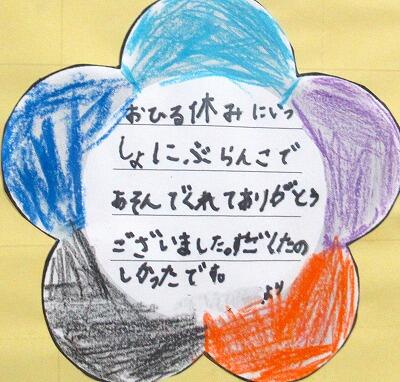 おひる休みにいっ
しょに、ぶらんこで
あそんでくれてありがとう
ございました。すごくたの
しかったです。
より